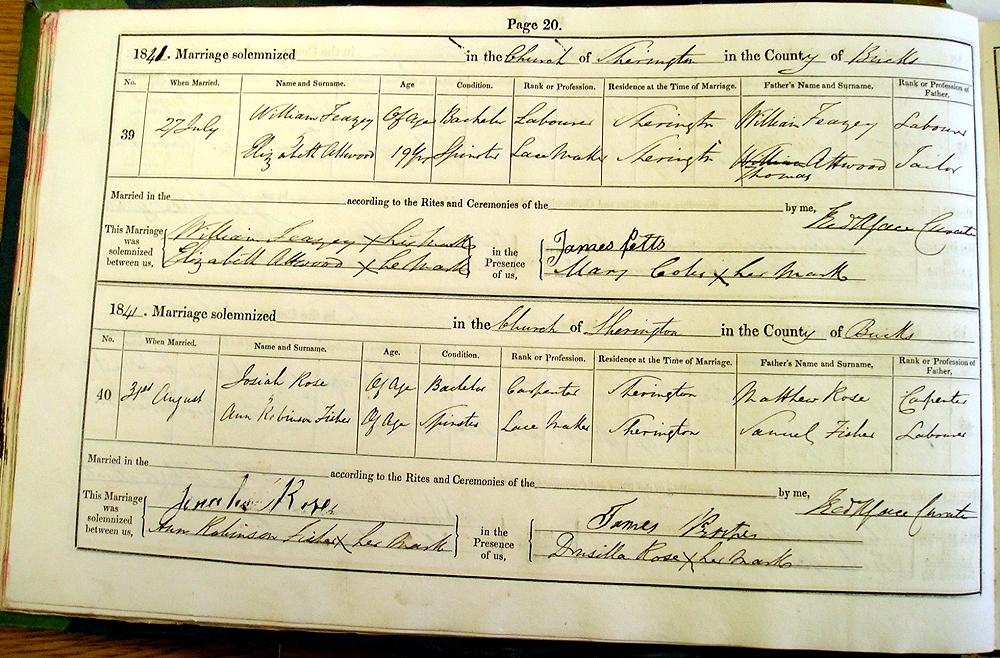 Page 20.
1841. Marriage solemnized in the Church of Sherington in the County of Bucks
No. When Married. Name and Surname. Age Condition. Rank or Profession. Residence at the Time of Marriage. Father's Name and Surname. Rank or Profession of Father.
39 27 July William Feazey Of Age Bachelor Labourer Sherington William Feazey Labourer
Elizabeth Attwood 19 Yrs Spinster Lace Maker Sherington William Attwood Tailor
Thomas
Married in the according to the Rites and Ceremonies of the by me, Curate
This Marriage was solemnized between us, William Feazey X his Mark in the Presence of us, James Petts
Elizabeth Attwood X her Mark Mary Coles X her Mark
1841. Marriage solemnized in the Church of Sherington in the County of Bucks
No. When Married. Name and Surname. Age. Condition. Rank or Profession. Residence at the Time of Marriage. Father's Name and Surname, Rank or Profession of Father,
40 August Josiah Rose Of Age Bachelor Carpenter Sherington Matthew Rose Carpenter
Ann Robinson Fisher Of Age Spinster Lace Maker Sherington Samuel Fisher Labourer
Married in the according to the Rites and Ceremonies of the by me, Curate
This Marriage was solemnized between us, Rose in the Presence of us, James
Ann Robinson Fisher X her Mark Drusilla Rose X her Mark